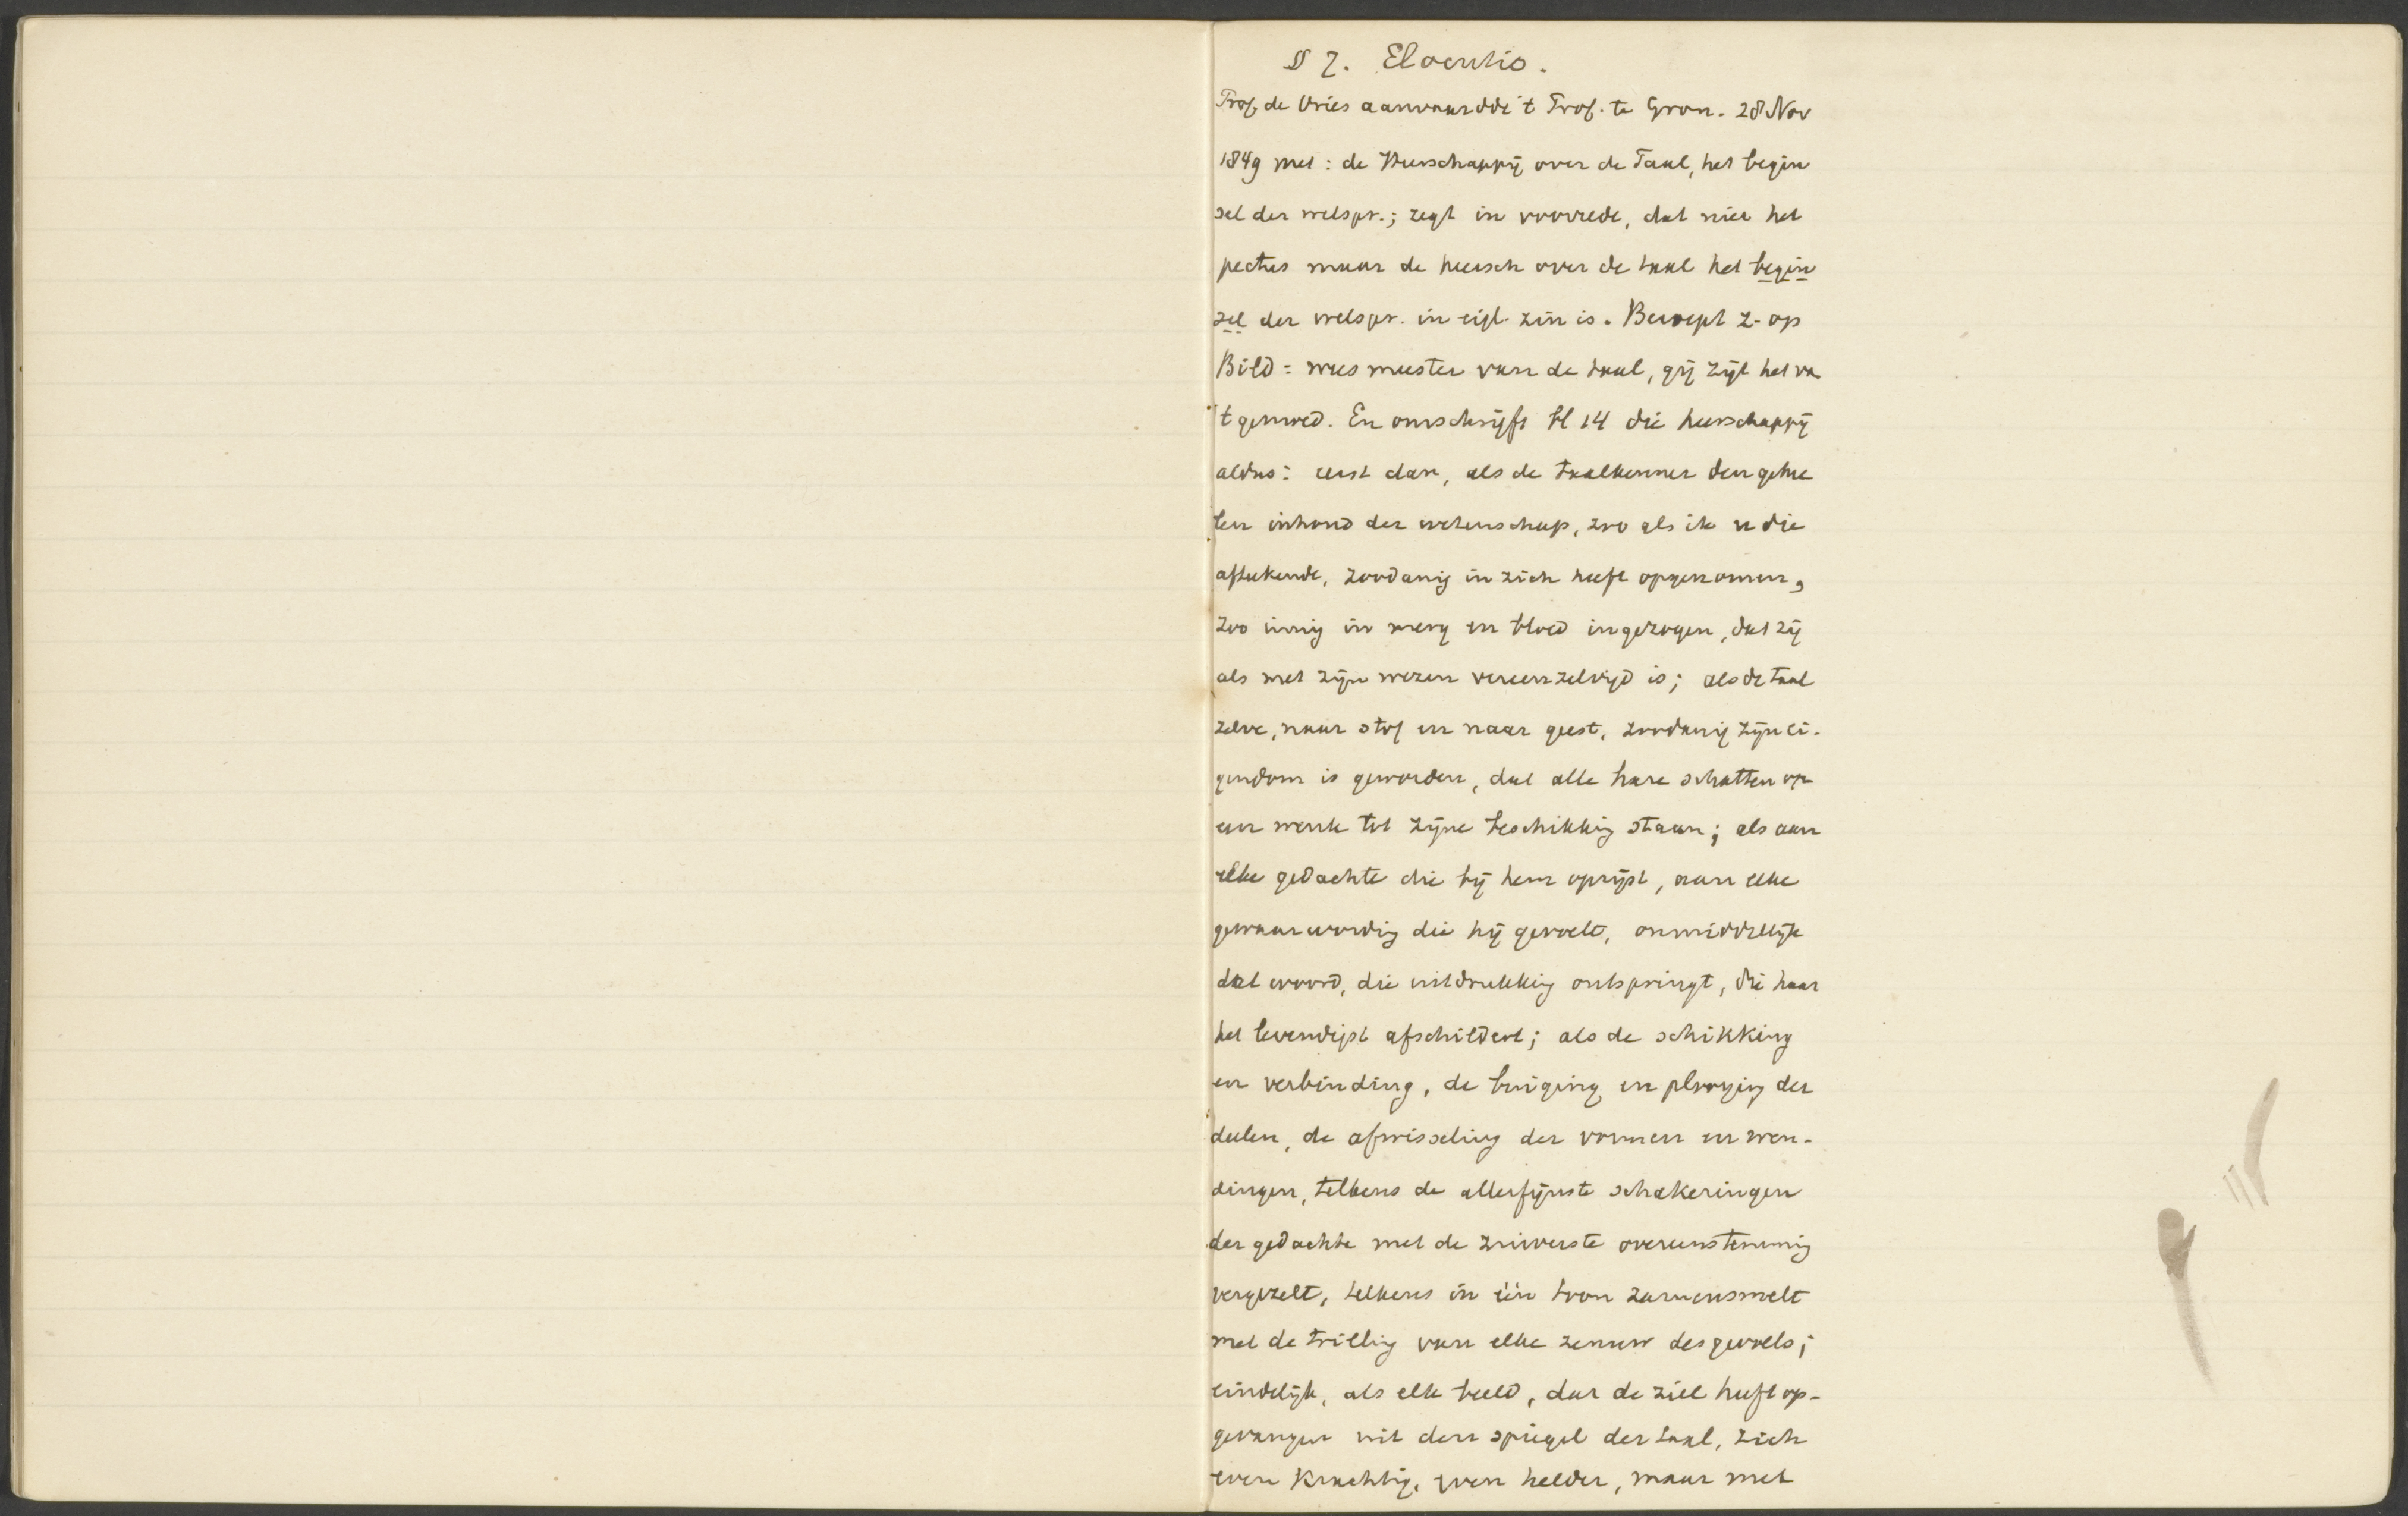 § 7. Elocutio.
Prof. de Vries aanvaardde 't Prof. te Gron. 28 Nov
1849 met: de Heerschappij over de Taal, het begin
sel der welspr.; zegt in voorrede, dat niet het
pectus maar de heersch over de taal het begin
sel der welspr. in eigl. zin is. Beroept z. op
Bild: wees meester van de taal, gij zijt het van
't gemoed. En omschrijft bl 14 die heerschappij
aldus: eerst dan, als de taalkenner den gehee
len inhoud der wetenschap, zoo als ik u die
afteekende, zoodanig in zich heeft opgenomen,
zoo innig in merg en bloed ingezogen, dat zij
als met zijn wezen vereenzelvigd is; als de taal
zelve, naar stof en naar geest, zoodanig zijn ei-
gendom is geworden, dat alle hare schatten op
een wenk tot zijne beschikking staan; als aan
elke gedachte die bij hem oprijst, aan elke
gewaarwording die hij gevoelt, onmiddellijk
dat woord, die uitdrukking ontspringt, die haar
het levendigst afschildert; als de schikking
en verbinding, de buiging en plooying der
deelen, de afwisseling der vormen en wen-
dingen, telkens de allerfijnste schakeringen
der gedachte met de zuiverste overeenstemming
vergezelt, telkens in één toon zamensmelt
met de trilling van elke zenuw des gevoels;
eindelijk, als elk beeld, dat de ziel heeft op-
gevangen uit den spiegel der taal, zich
even krachtig, even helder, maar met